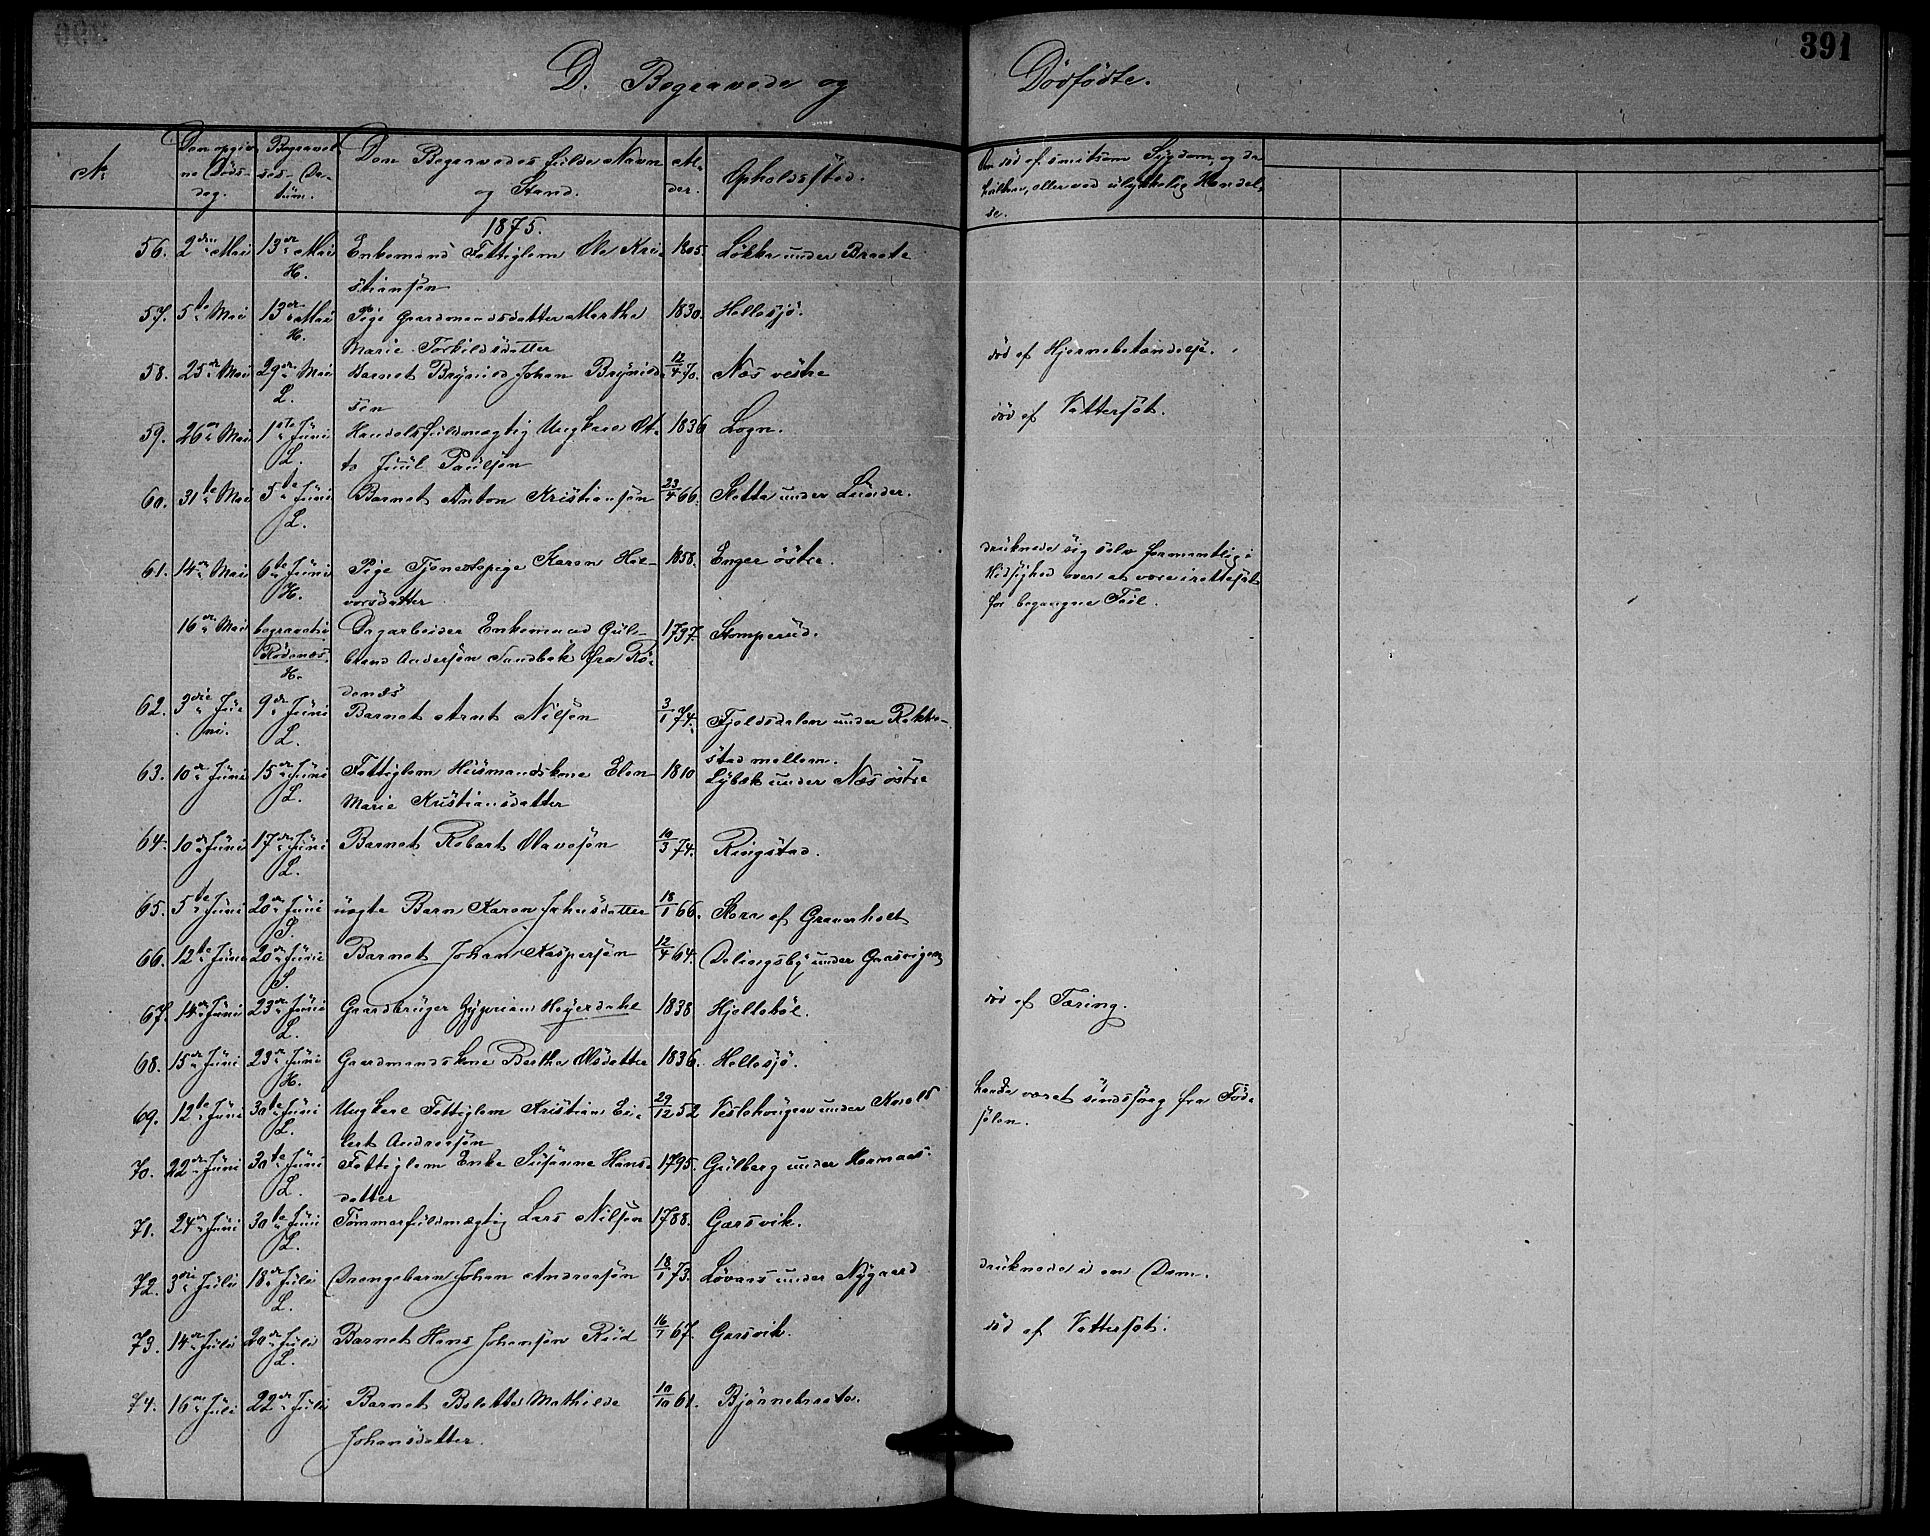 391
D. Begravede og Dödfödte.
No
Den opgivne Döds-dag.
Begravelses-Datum.
Den Begravedes fulde Navn og Stand.
Alder.
Opholdssted.
Den död af smitsom Sygdom, og da hvilken, eller ved ulykkelig Hændelse.
1875.
56. 2den Mai 13de Mai H. Enkemand Fattiglem Ole Kristiansen 1805. Løkka under Braate
57. 5te Mai 13de Mai H. Pige Gaardmandsdatter Marthe Marie Torkildsdatter 1830. Hellesjö.
58. 25de Mai 29de Mai L. Barnet Brynild Johan Brynildsen 12/4 70. Næs vestre död af Hjernebetændelse.
59. 26de Mai 1ste Juni L. Handelsfuldmægtig Ungkarl Otto Juul Paulsen 1836 Sogn. död af Vattersot.
60. 31te Mai 5te Juni L. Barnet Anton Kristiansen 23/4 66. Sletta under Lunder.
61. 14de Mai 6te Juni H. Pige Tjenestepige Karen Halvorsdatter 1858. Enger östre. druknede sig selv formentlig i Hidsighed over at være irettesat for begangne Feil.
16de Mai begravet i Rödenæs. H. Dagarbeider Enkemand Gulbrand Andersen Sandbæk fra Rödenæs 1797. Stomperud.
62. 3die Juni. 9de Juni L. Barnet Arnt Nilsen 3/1 74. Fjeldsdalen under Rakkestad mellem.
63. 10de Juni 15de Juni L. Fattiglem Husmandskone Elen Marie Kristiansdatter 1810 Lybæk under Næs östre
64. 10de Juni 17de Juni L. Barnet Robert Olavesen 10/3 74. Ringstad.
65. 5te Juni 20de Juni S. uægte Barn Karen Johnsdatter 18/1 66. Skora af Graverholt
66. 12te Juni 20de Juni S. Barnet Johan Kaspersen 12/4 64. Delingsby under Gaasvigen
67. 14de Juni 23de Juni L. Gaardbruger Zyprian Høyerdahl 1838 Hjeltebøl. död af Tæring.
68. 15de Juni 23de Juni H. Gaardmandskone Berthe Olsdatter 1836. Hellesjö.
69. 12te Juni 30te Juni L. Ungkarl Fattiglem Kristian Eilert Andreasen 29/12 52 Veslehougen under Knold havde været sindssvag fra Födselen.
70. 22de Juni 30te Juni L. Fattiglem Enke Susanne Hansdatter 1795. Gulberg under Hermaas.
71. 24de Juni 30te Juni L. Tømmerfuldmægtig Lars Nilsen 1788. Gaasvik.
72. 3die Juli 18de Juli L. Drengebarn Johan Andreasen 18/1 73. Løvaas under Nygaard druknede i en Dam.
73. 14de Juli 20de Juli L. Barnet Hans Johansen Rud 16/7 67. Gaasvik. död af Vattersot.
74. 16de Juli 22de Juli Barnet Bolette Mathilde Johansdatter. 10/10 61. Bjørnebraaten.